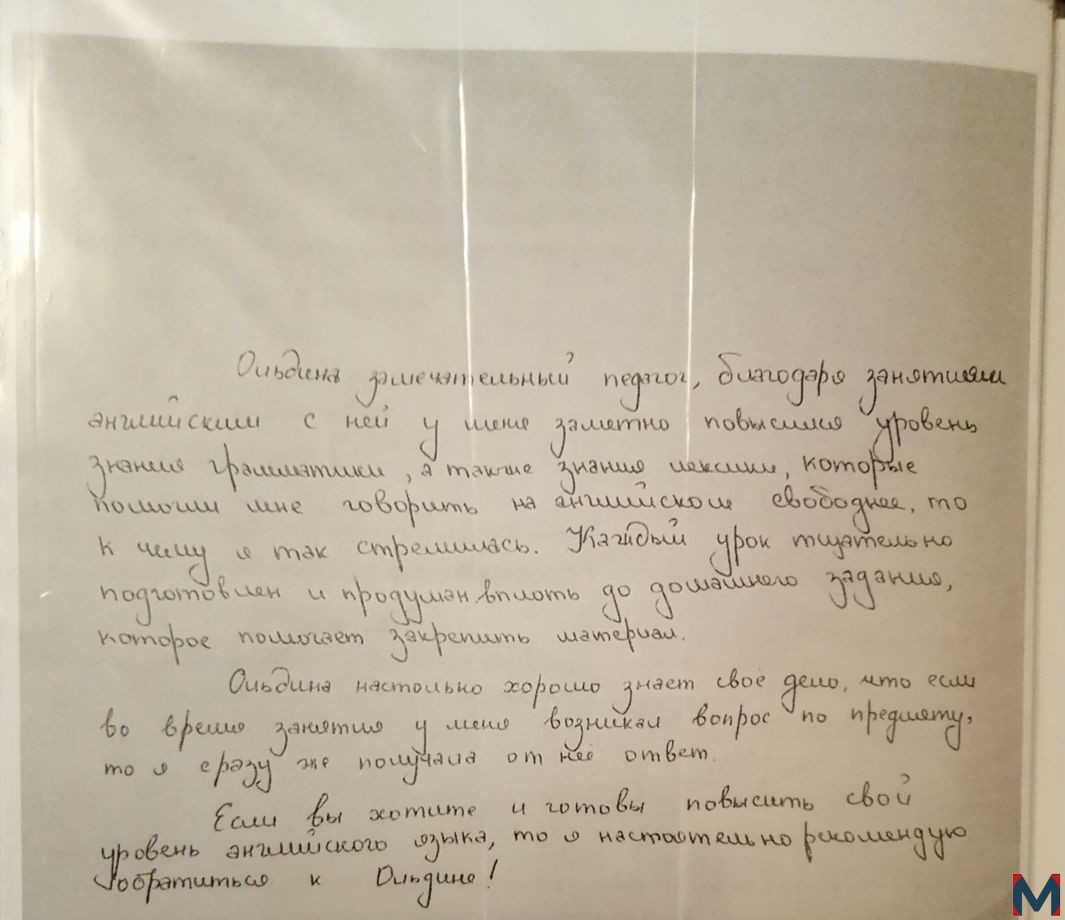 Ольдина замечательный педагог, благодаря занятиям
английским с ней у меня заметно повысился уровень
знания грамматики, а также знания лексики, которые
помогли мне говорить на английском свободнее, то
к чему я так стремилась. Каждый урок тщательно
подготовлен и продуман вплоть до домашнего задания,
которое помогает закрепить материал.
Ольдина настолько хорошо знает своё дело, что если
во время занятия у меня возникал вопрос по предмету,
то я сразу же получала от неё ответ.
Если вы хотите и готовы повысить свой
уровень английского языка, то я настоятельно рекомендую
обратиться к Ольдине!
M